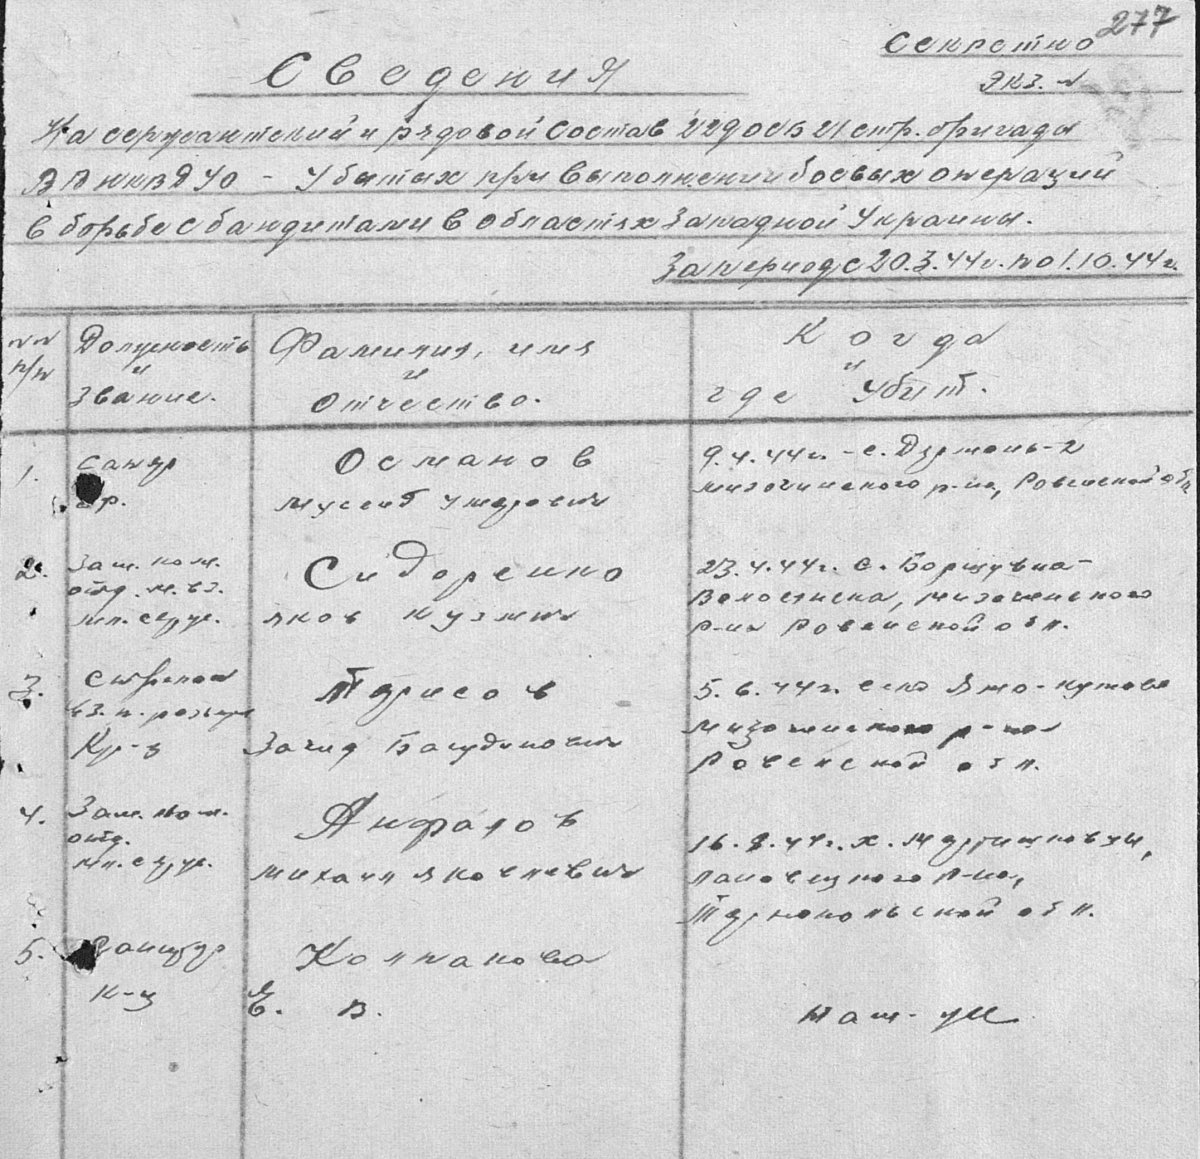 277
Секретно
Экз. №
Сведения
На сержантский и рядовой состав 229 ОСБ 21 стр. бригады
ВВ НКВД УО - убытых при выполнении боевых операций
в борьбе с бандитами в областях Западной Украины.
За период с 20.3.44г. по 1.10.44г.
№№ п/п
Должность и звание.
Фамилия, имя и отчество.
Когда и где убит.
1.
Санур
Османов
Мусеиб Умерович
9.4.44г. - с. Дермань-2
Мизочинского р-на, Ровенской обл
2.
Зам. ком.
отд. м. вз.
мл. серж.
Сидоренко
Яков Кузмич
23.4.44г. с. Борщувка-
Волостиска, Мизочинского
р-на Ровенской обл.
3.
Стрелок
вз. п. разведк
Кр-ц
Идрисов
Загид
5.6.44г. село
Мизочинского р-на
Ровенской обл.
4.
Зам. ком.
отд.
мл. серж.
Анфалов
Михаил Яковлевич
16.8.44г. х. Мартишковцы,
Лановецкого р-на,
Тернопольской обл.
5.
к-ц
Колпакова
Е. В.